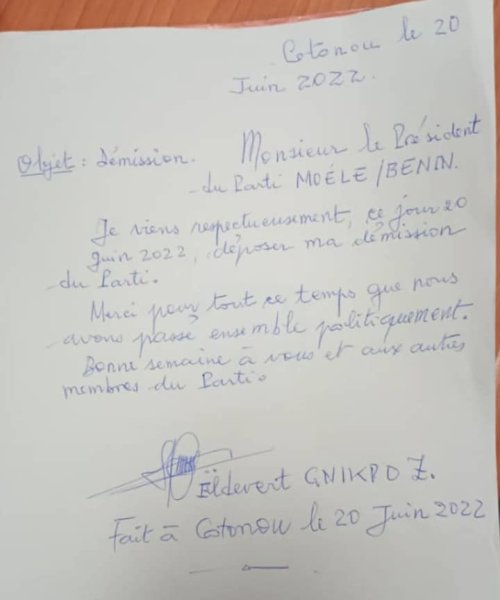 Cotonou le 20
Juin 2022.
Objet : démission. Monsieur le Président
du Parti MOÉLE/BENIN.
Je viens respectueusement, ce jour 20
Juin 2022, déposer ma démission
du Parti.
Merci pour tout ce temps que nous
avons passé ensemble politiquement.
Bonne semaine à vous et aux autres
membres du Parti.
Eldevert GNIKPO Z.
Fait à Cotonou le 20 Juin 2022